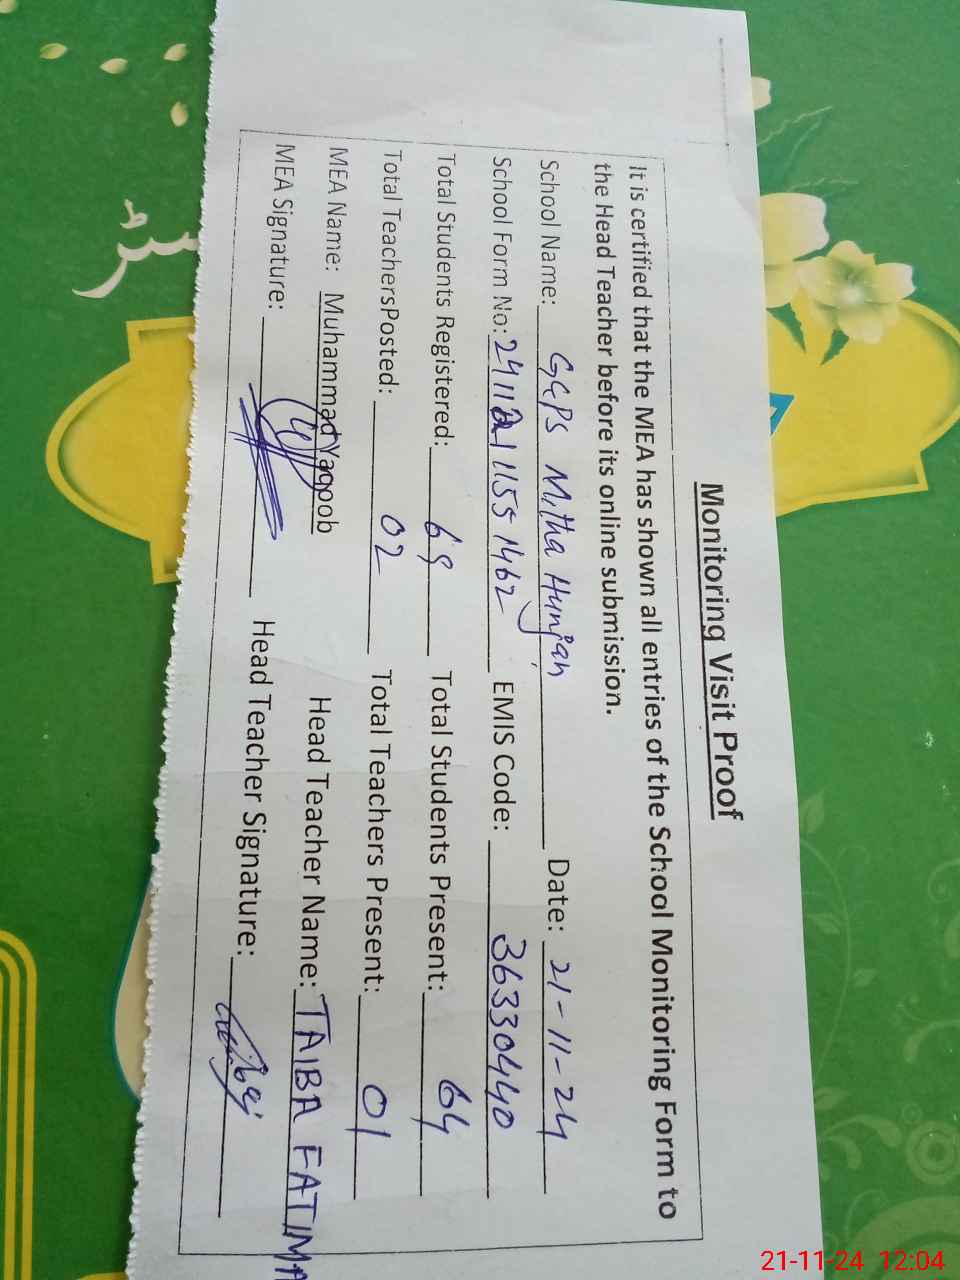 Monitoring Visit Proof
It is certified that the MEA has shown all entries of the School Monitoring Form to
the Head Teacher before its online submission.
School Name: GGPS Mitha Hunjan Date: 21-11-24
School Form No: EMIS Code: 36330440
Total Students Registered: 69 Total Students Present: 64
Total TeachersPosted: 02 Total Teachers Present: 01
MEA Name: Muhammad Yaqoob Head Teacher Name: TAIBA FATIMA
MEA Signature: Head Teacher Signature:
21-11-24 12:04